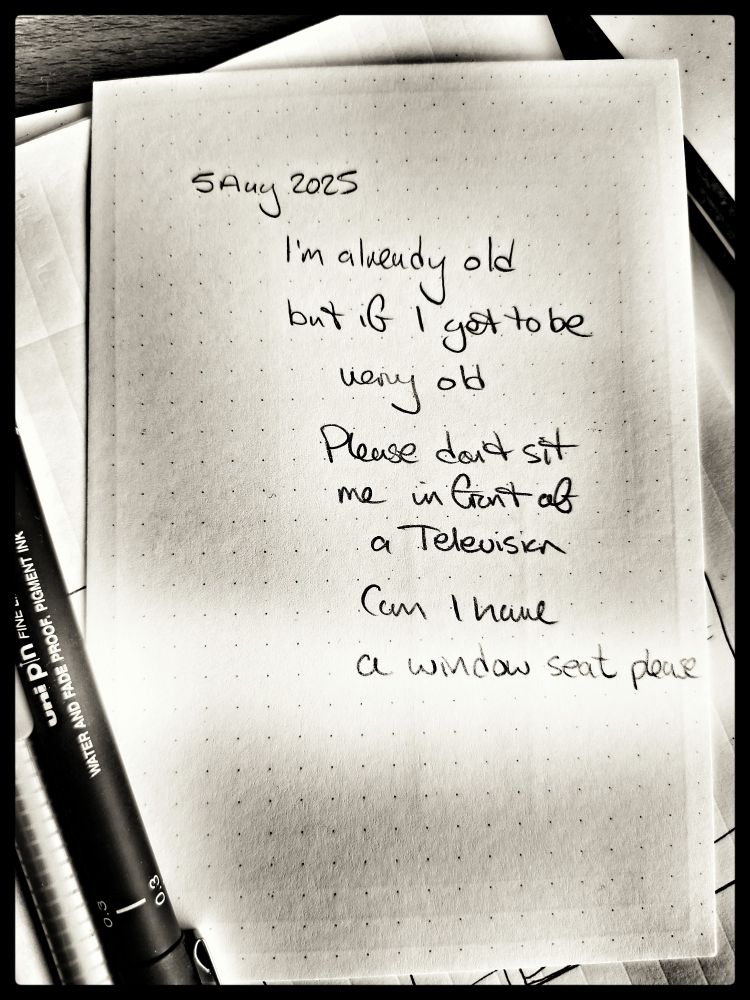 5 Aug 2025
I'm already old
but if I get to be
very old
Please don't sit
me in front of
a Television
Can I have
a window seat please
uni pin FINE
WATER AND FADE PROOF, PIGMENT INK
0.3
0.3